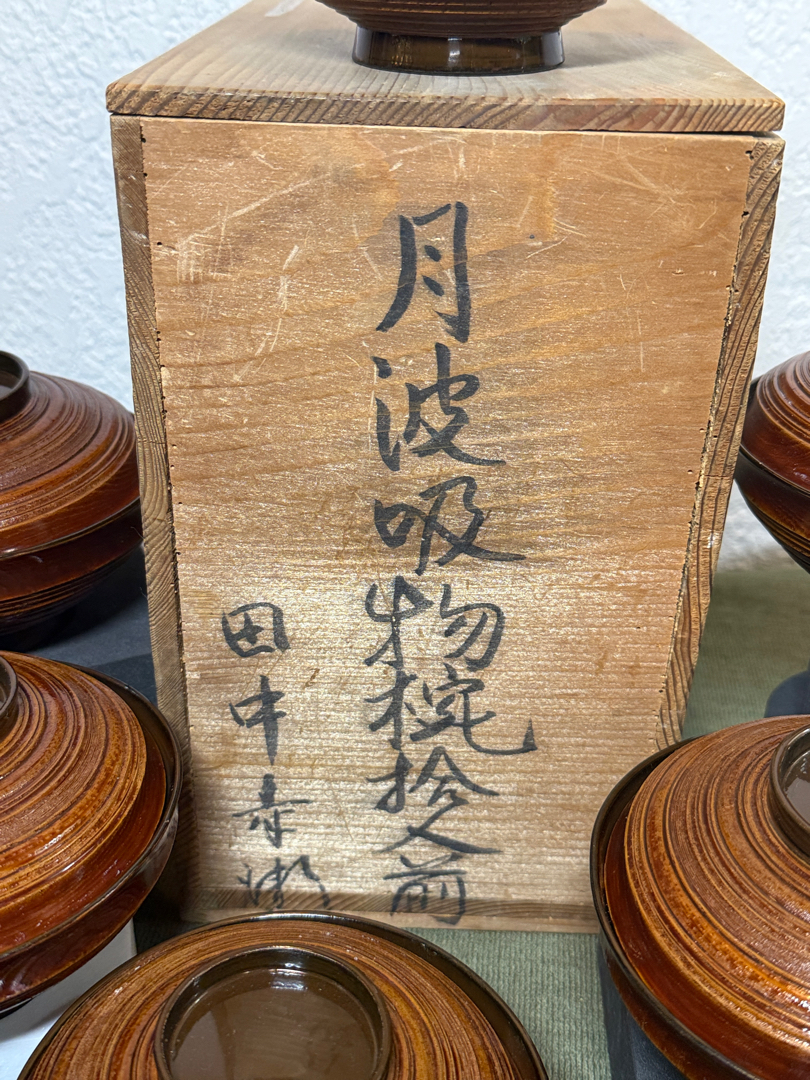 月波吸物椀拾人前
田中